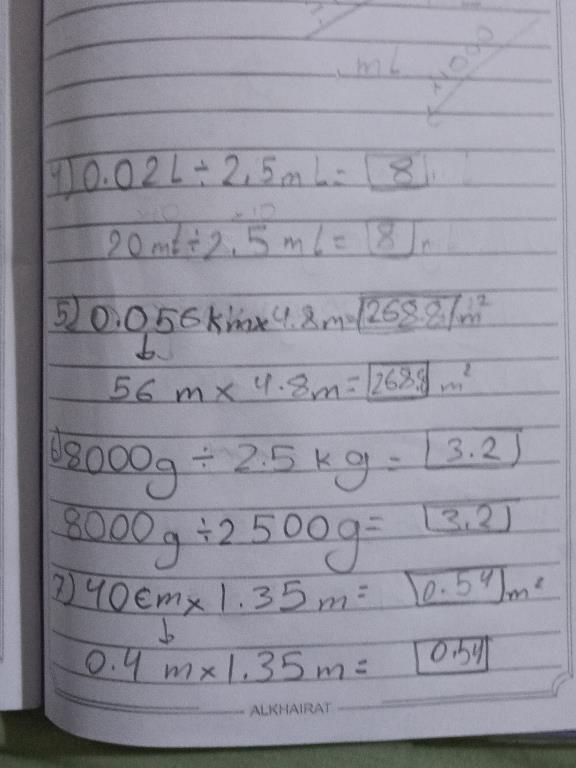 mL
÷1000
4) 0.02L ÷ 2.5mL = 8
20mL ÷ 2.5mL = 8
5) 0.056km × 4.8m = 268.8 m²
56 m × 4.8m = 268.8 m²
6) 8000g ÷ 2.5kg = 3.2
8000g ÷ 2500g = 3.2
7) 40cm × 1.35m = 0.54 m²
0.4 m × 1.35m = 0.54
ALKHAIRAT